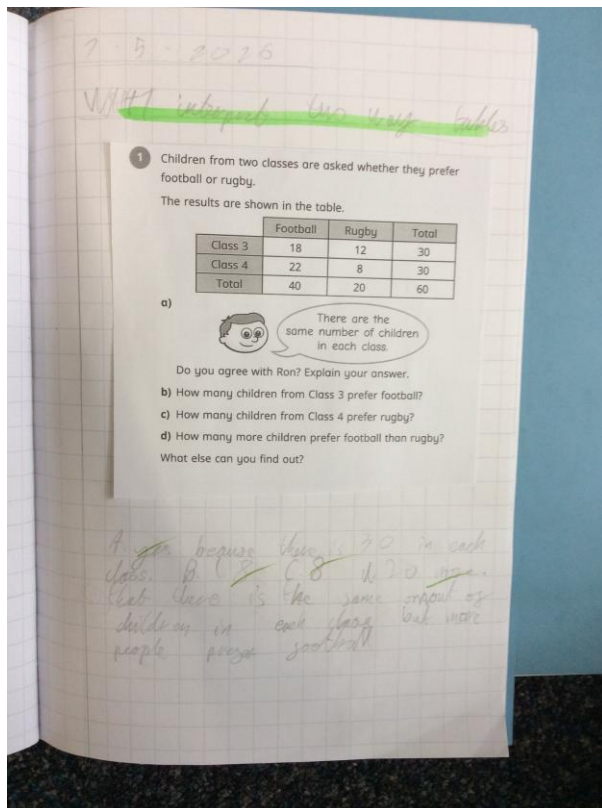 7.5.2026
WALT interpret two way tables
1 Children from two classes are asked whether they prefer
football or rugby.
The results are shown in the table.
Football Rugby Total
Class 3 18 12 30
Class 4 22 8 30
Total 40 20 60
a)
There are the
same number of children
in each class.
Do you agree with Ron? Explain your answer.
b) How many children from Class 3 prefer football?
c) How many children from Class 4 prefer rugby?
d) How many more children prefer football than rugby?
What else can you find out?
A. yes because there is 30 in each
class. B 18 C 8 d 20 more.
that there is the same of
children in each class but more
people football